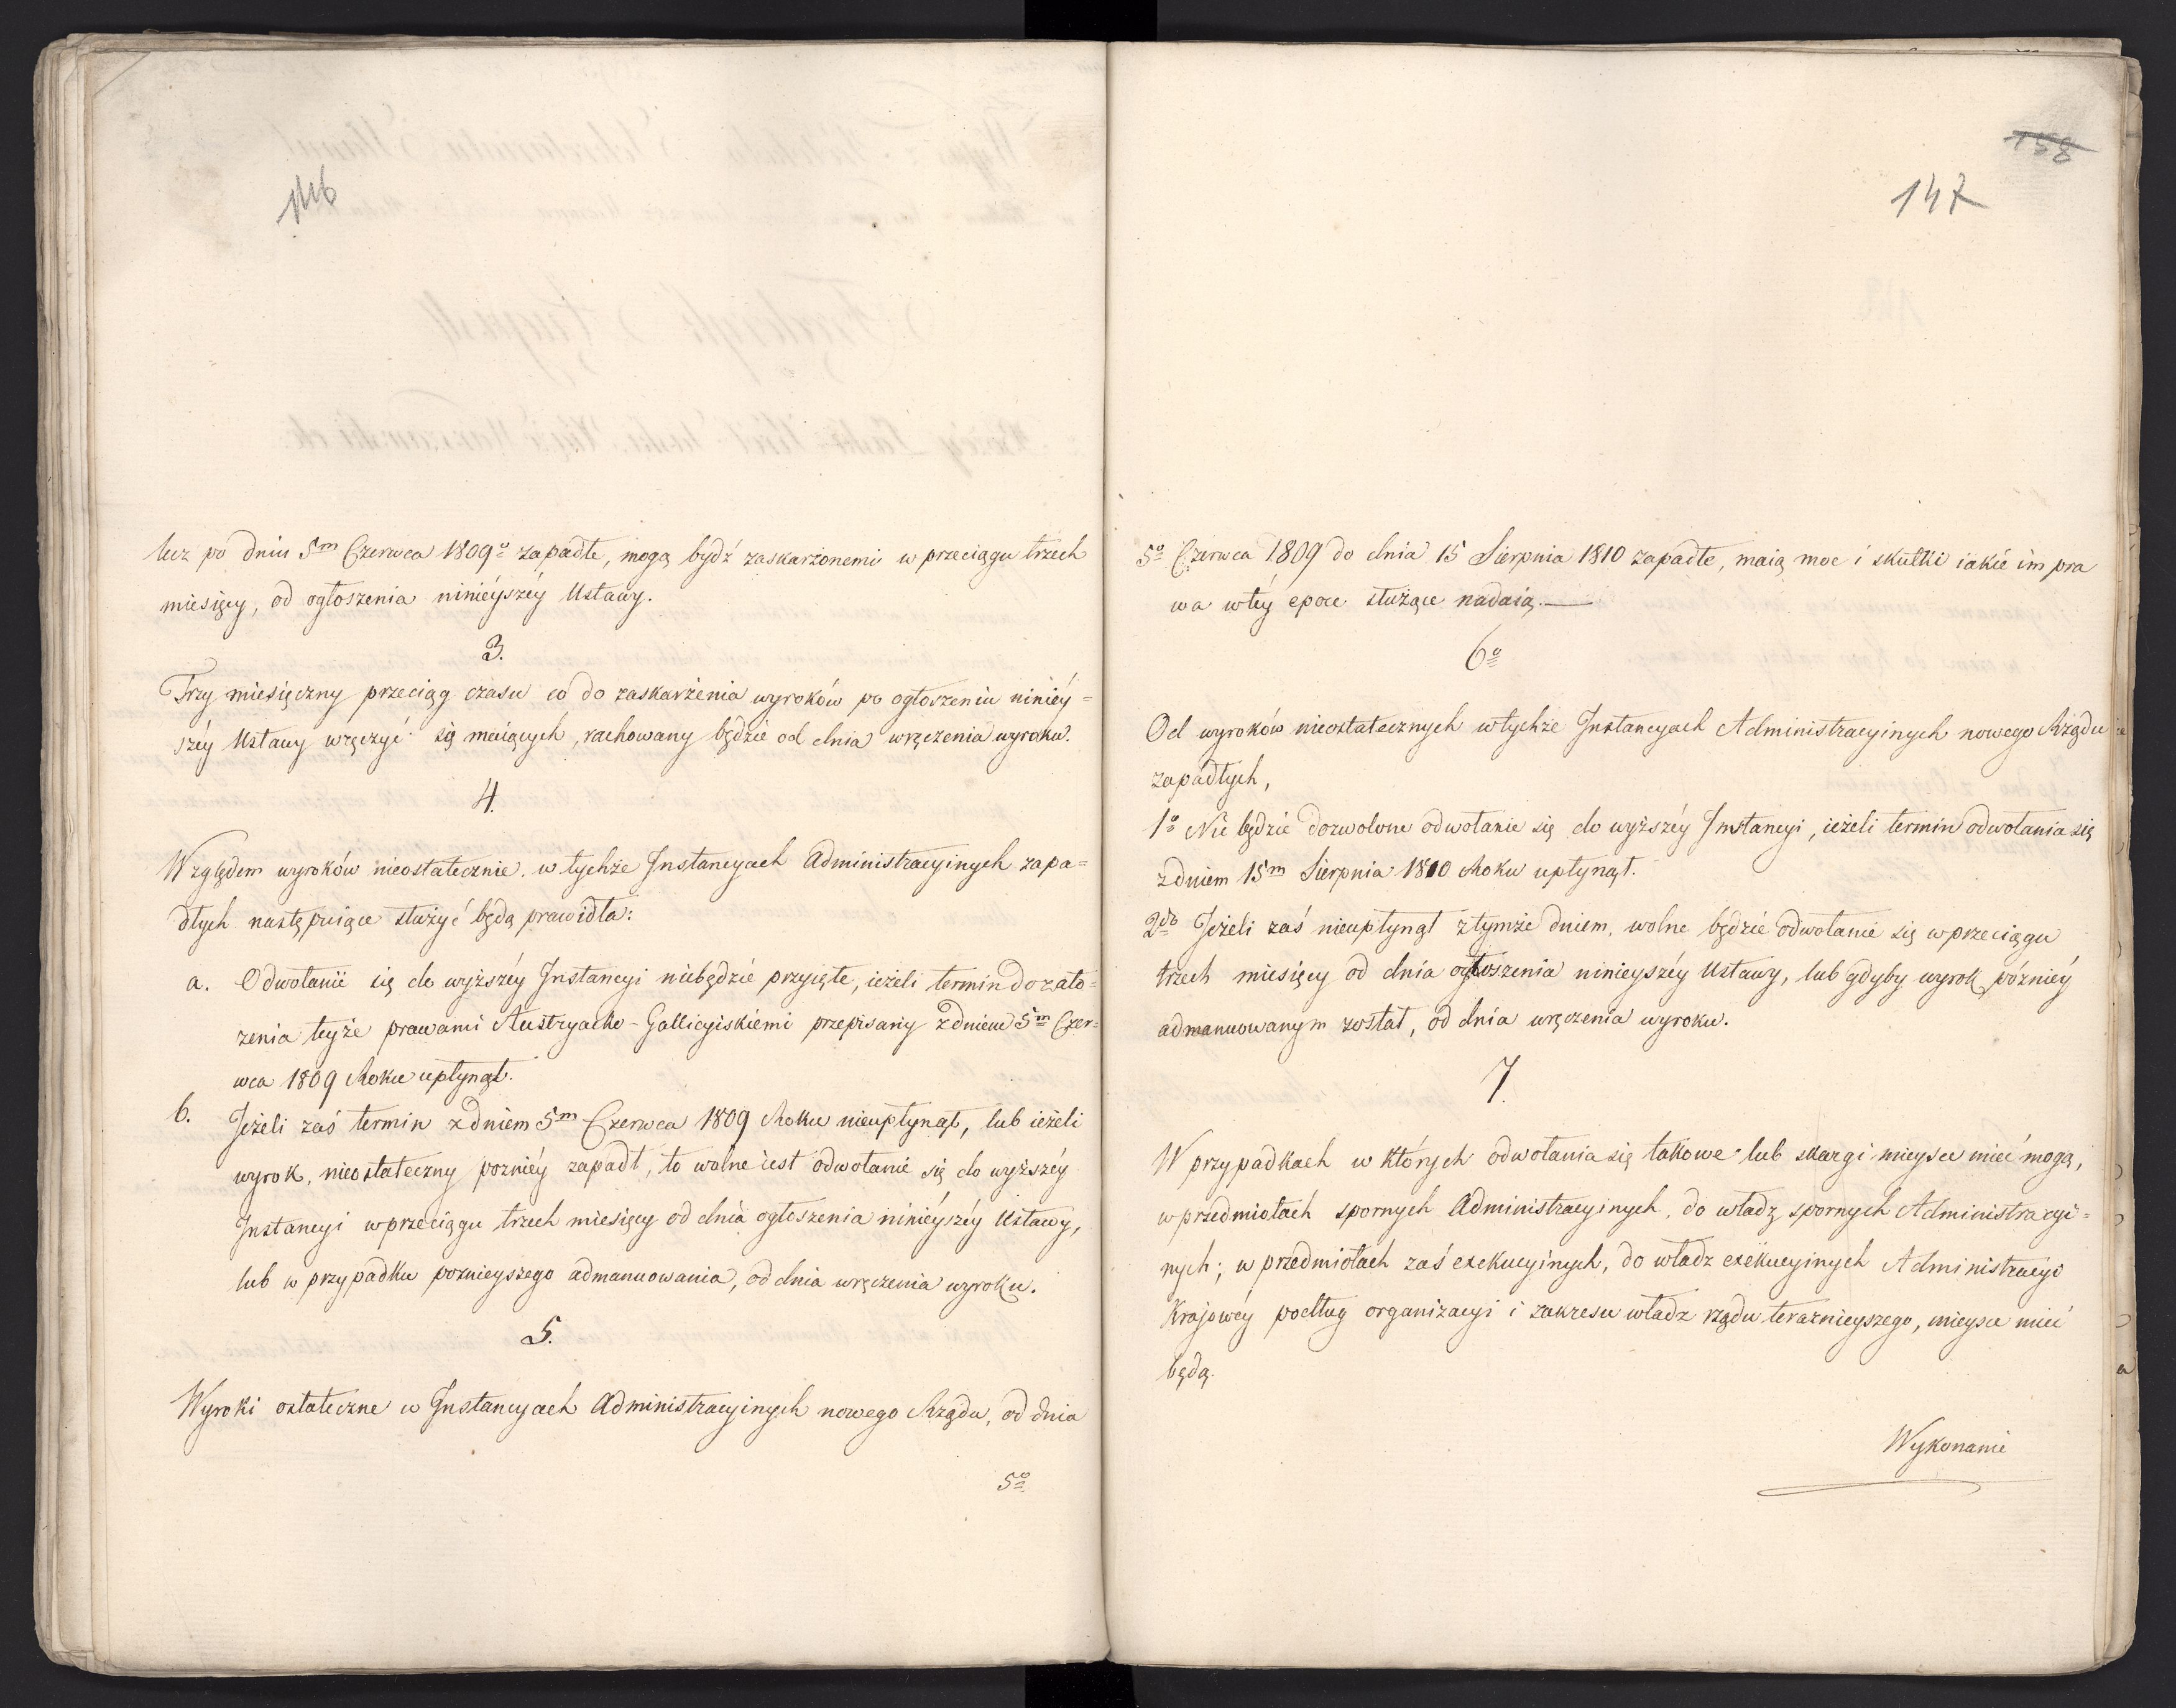 146
lecz po dniu 5m Czerwca 1809o zapadłe, mogą bydź zaskarżonemi w przeciągu trzech
miesięcy, od ogłoszenia ninieyszéy Ustawy.
3.
Trzy miesięczny przeciąg czasu co do zaskarżenia wyroków po ogłoszeniu niniéy=
széy Ustawy wręczyć się maiących, rachowany będzie od dnia wręczenia wyroku.
4.
Względem wyroków nieostatecznie w tychże Instancyach Administracyinych zapa=
dłych następuiące służyć będą prawidła:
a. Odwołanie się do wyższéy Instancyi niebędzie przyięte, ieżeli termin do zało=
żenia teyże prawami Austryacko-Gallicyiskiemi przepisany zdniem 5m Czer=
wca 1809 Roku upłynął.
b. Jeżeli zaś termin zdniem 5m Czerwca 1809 Roku nieupłynął, lub ieżeli
wyrok, nieostateczny pozniéy zapadł, to wolne iest odwołanie się do wyższéy
Instancyi wprzeciągu trzech miesięcy od dnia ogłoszenia ninieyszéy Ustawy,
lub w przypadku poznieyszego admanuowania, od dnia wręczenia wyroku.
5.
Wyroki ostateczne w Instancyach Administracyinych nowego Rządu, od dnia
5o
158
147
5o Czerwca 1809 do dnia 15 Sierpnia 1810 zapadłe, maią moc i skutki iakie im pra
wa wtéy epoce służące nadaią.
6o
Od wyroków nieostatecznych wtychże Instancyach Administracyinych nowego Rządu
zapadłych,
1o Nie będzie dozwolone odwołanie się do wyższéy Instancyi, ieżeli termin odwołania się
zdniem 15m Sierpnia 1810 Roku upłynął.
2do Jeżeli zaś nieupłynął ztymże dniem, wolne będzie odwołanie się wprzeciągu
trzech miesięcy od dnia ogłoszenia ninieyszéy Ustawy, lub gdyby wyrok późniéy
admanuowanym został, od dnia wręczenia wyroku.
7.
W przypadkach w których odwołania się takowe lub skargi mieysce mieć mogą,
wprzedmiotach spornych Administracyinych, do władz spornych Administracyi=
nych; w przedmiotach zaś exekucyinych, do władz exekucyinych Administracyi
Krajowéy podług organizacyi i zakresu władz rządu teraznieyszego, mieysce mieć
będą.
Wykonanie